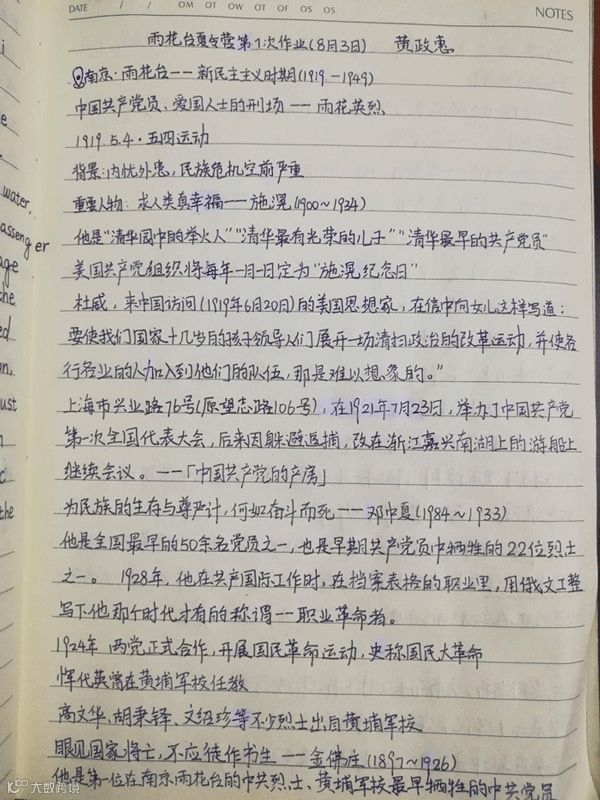 DATE / / OM OT OW OT OF OS OS
NOTES
雨花台夏令营第1次作业(8月3日) 黄政惠
南京·雨花台——新民主主义时期(1919-1949)
中国共产党员、爱国人士的刑场——雨花英烈
1919.5.4·五四运动
背景:内忧外患,民族危机空前严重
重要人物:求人类真幸福——施滉(1900~1934)
他是“清华园中的举火人”“清华最有光荣的儿子”“清华最早的共产党员”
美国共产党组织将每年一月一日定为“施滉纪念日”
杜威,来中国访问(1919年6月20日)的美国思想家,在信中向女儿这样写道:
要使我们国家十几岁的孩子领导人们展开一场清扫政治的改革运动,并使各
行各业的人加入到他们的队伍,那是难以想象的。”
上海市兴业路76号(原望志路106号),在1921年7月23日,举办了中国共产党
第一次全国代表大会,后来因躲避追捕,改在浙江嘉兴南湖上的游船上
继续会议。——「中国共产党的产房」
为民族的生存与尊严计,何如奋斗而死——邓中夏(1984~1933)
他是全国最早的50余名党员之一,也是早期共产党员中牺牲的22位烈士
之一。 1928年,他在共产国际工作时,在档案表格的职业里,用俄文工整
写下他那个时代才有的称谓——职业革命者。
1924年 两党正式合作,开展国民革命运动,史称国民大革命
恽代英曾在黄埔军校任教
高文华、胡秉铎、文绍珍等不少烈士出自黄埔军校
眼见国家将亡,不应徒作书生——金佛庄(1897~1926)
他是第一位在南京雨花台的中共烈士、黄埔军校最早牺牲的中共党员
water,
assenger
age
the
ed
on,
ust
n
c
the
大数跨境